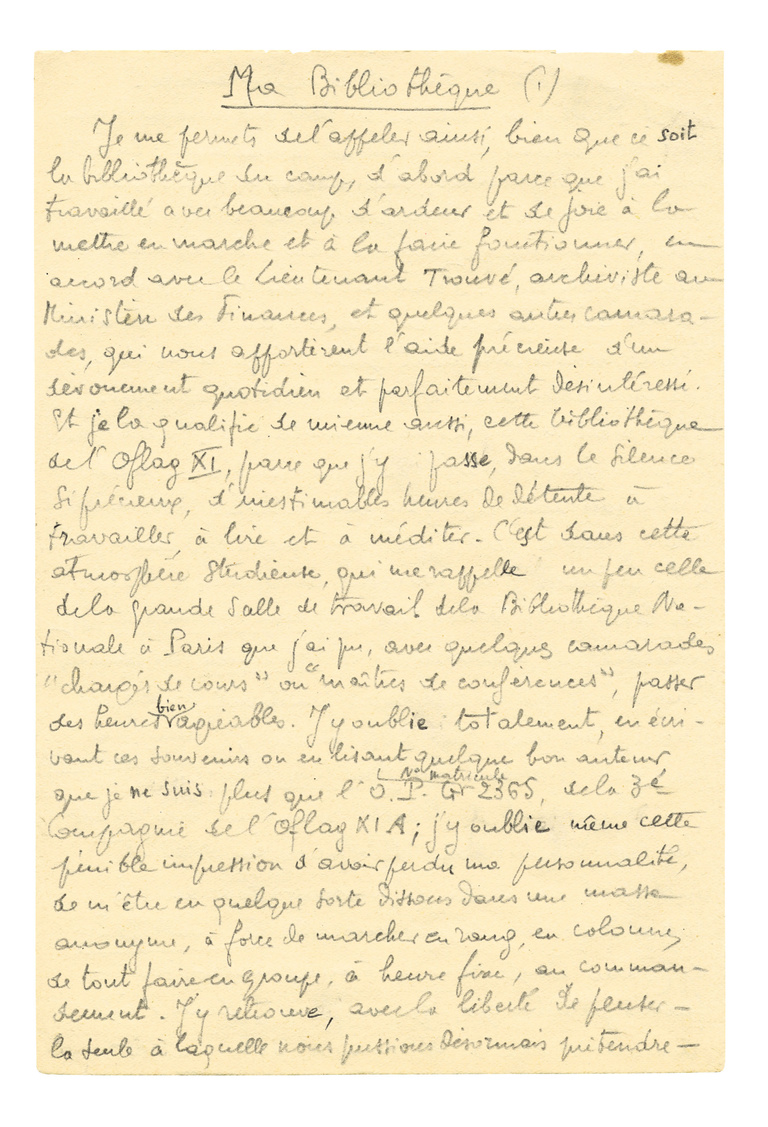 Ma Bibliothèque (1)
Je me permets de l'appeler ainsi, bien que ce soit
la bibliothèque du camp, d'abord parce que j'ai
travaillé avec beaucoup d'ardeur et de joie à la
mettre en marche et à la faire fonctionner, en
accord avec le Lieutenant Trouvé, archiviste au
Ministère des Finances, et quelques autres camara-
des, qui nous apportèrent l'aide précieuse d'un
dévouement quotidien et parfaitement désintéressé.
Et je la qualifie de mienne aussi, cette bibliothèque
de l'Oflag XI, parce que j'y passe, dans le silence
si précieux, d'inestimables heures de détente à
travailler, à lire et à méditer. C'est dans cette
atmosphère studieuse, qui me rappelle un peu celle
de la grande Salle de travail de la Bibliothèque Na-
tionale à Paris que j'ai pu, avec quelques camarades
"chargés de cours" ou "maîtres de conférences", passer
des heures bien agréables. J'y oublie totalement, en écri-
vant ces souvenirs ou en lisant quelque bon auteur,
que je ne suis plus que l'O.P. Gr 2365, de la 3e
No matricule
Compagnie de l'Oflag XI A; j'y oublie même cette
pénible impression d'avoir perdu ma personnalité,
de m'être en quelque sorte dissous dans une masse
anonyme, à force de marcher en rang, en colonne,
de tout faire en groupe, à heure fixe, au comman-
dement. J'y retrouve, avec la liberté de penser -
la seule à laquelle nous puissions désormais prétendre -